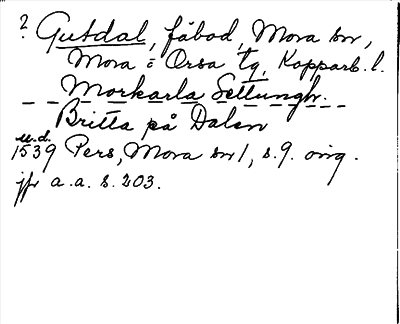 ? Gutdal, fäbod, Mora sn,
Mora o Orsa tg, Kopparb. l.
Morkarla Sellungh.
Britta på Dalen
u.d.
1539 Pers, Mora sn 1, s. 9. orig.
jfr a.a. s. 203.